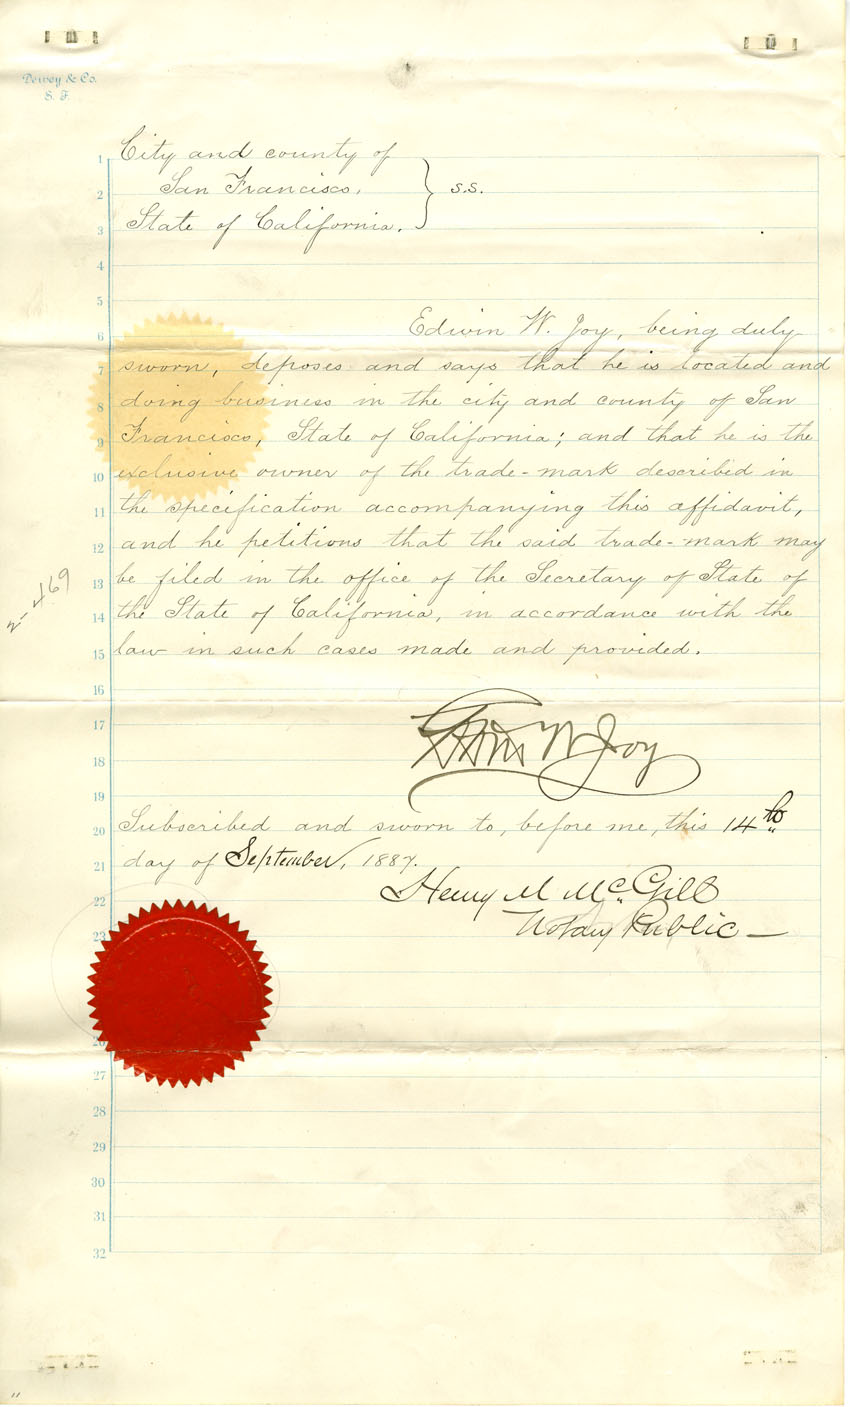 Dewey & Co.
S. F.
City and county of
San Francisco,
State of California.
} s.s.
Edwin W. Joy, being duly
sworn, deposes and says that he is located and
doing business in the city and county of San
Francisco, State of California; and that he is the
exclusive owner of the trade-mark described in
the specification accompanying this affidavit,
and he petitions that the said trade-mark may
be filed in the office of the Secretary of State of
the State of California, in accordance with the
law in such cases made and provided.
2-469
Edwin W Joy
Subscribed and sworn to, before me, this 14th
day of September, 1887.
Henry M McGill
Notary Public —
1
2
3
4
5
6
7
8
9
10
11
12
13
14
15
16
17
18
19
20
21
22
23
26
27
28
29
30
31
32